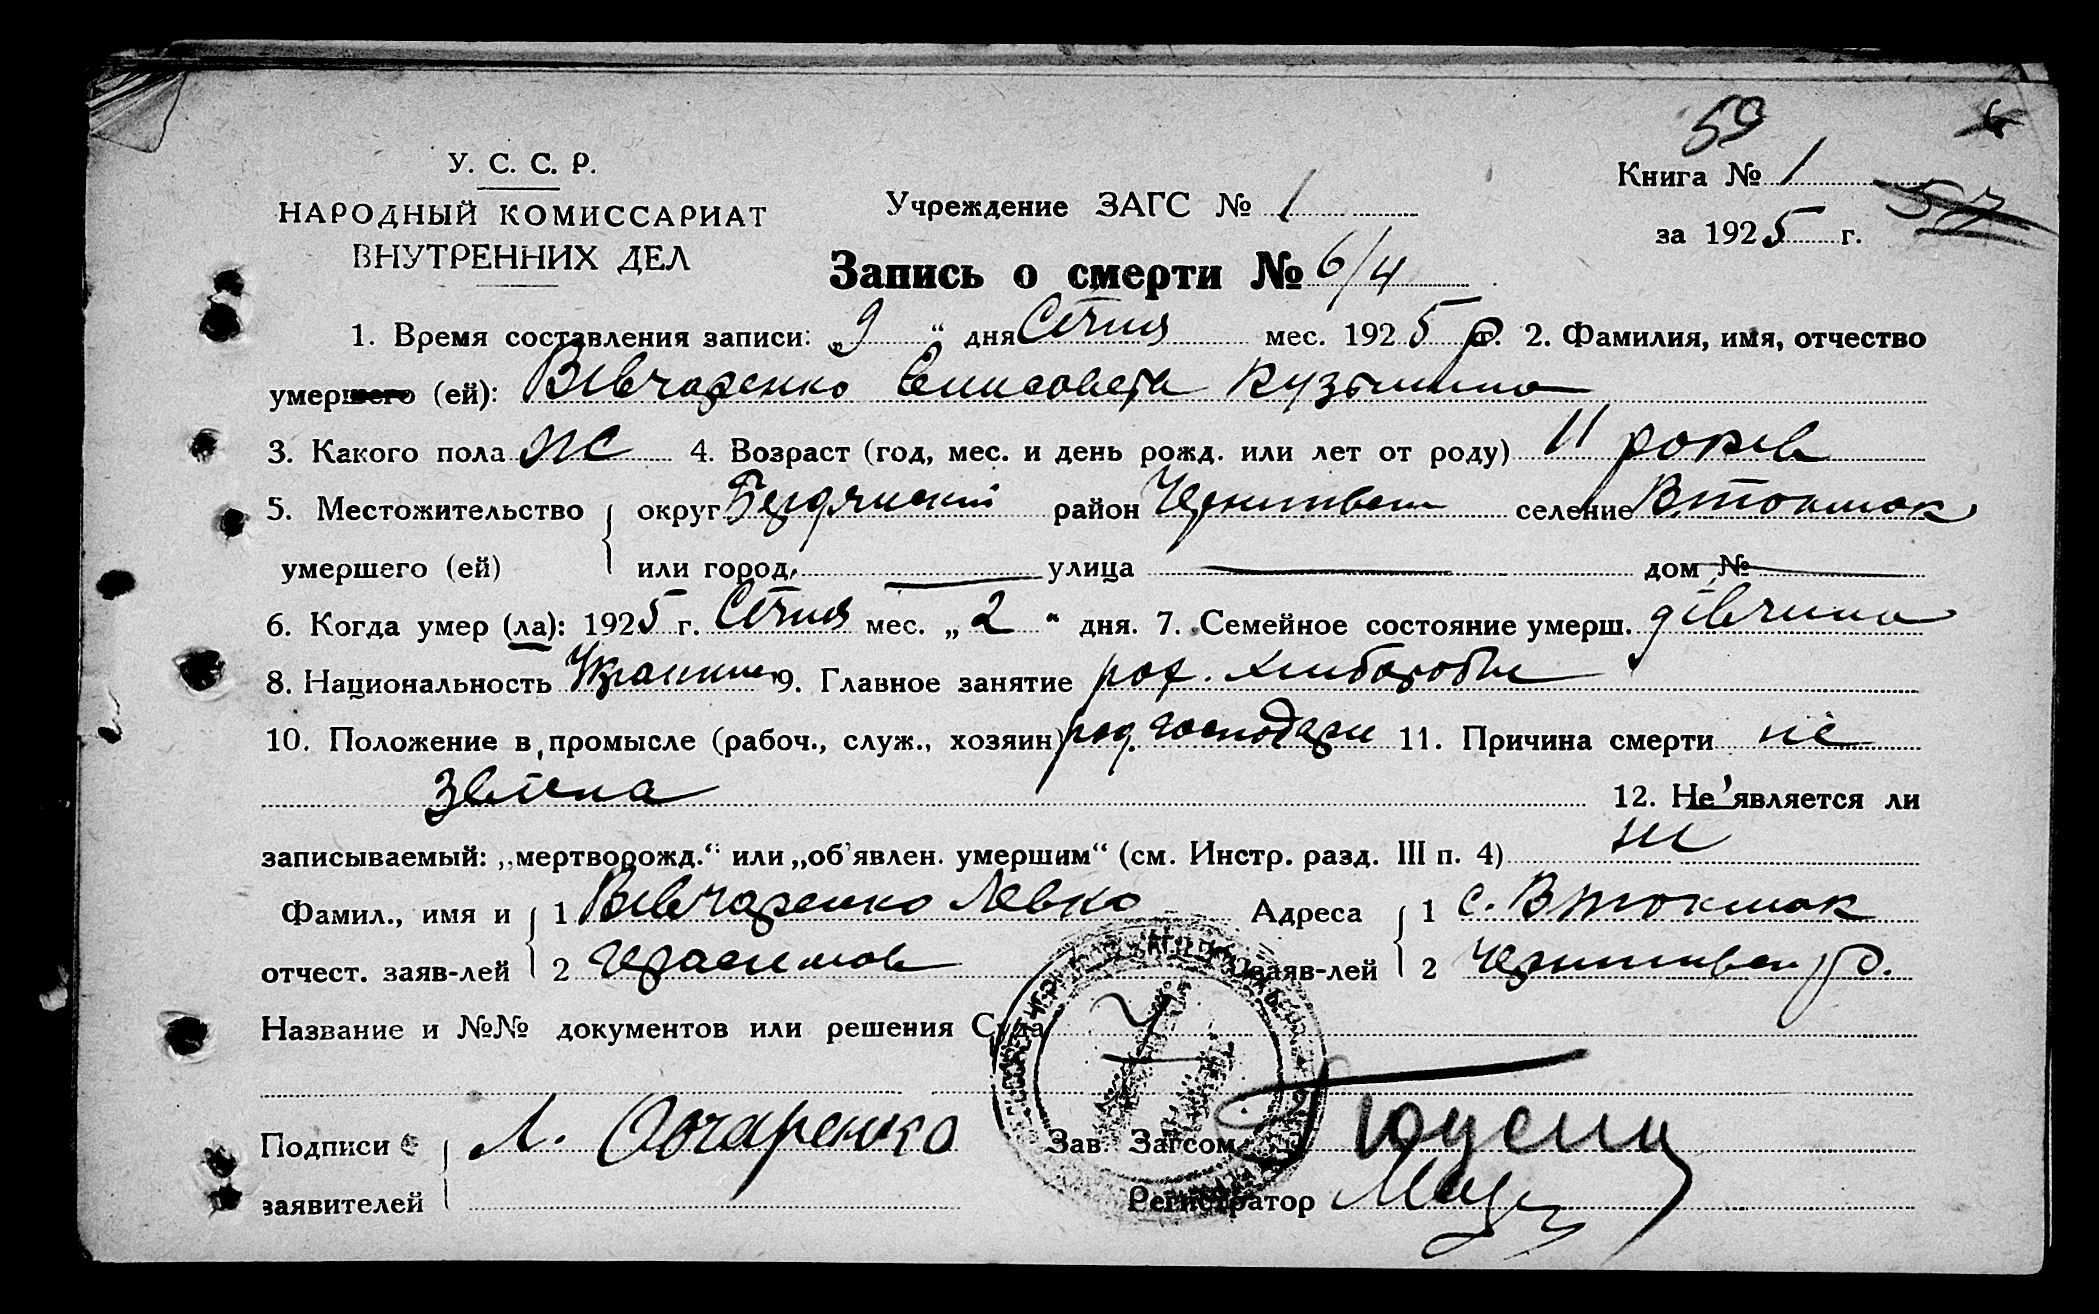 59
У. С. С. Р.
НАРОДНЫЙ КОМИССАРИАТ
ВНУТРЕННИХ ДЕЛ
Учреждение ЗАГС № 1
Книга № 1
за 1925 г. 57
Запись о смерти № 6/4
1. Время составления записи: „9“ дня Січня мес. 1925 г. 2. Фамилия, имя, отчество
умершего (ей): Вівчаренко Єлисовета Кузьмина
3. Какого пола ж 4. Возраст (год, мес. и день рожд. или лет от роду) 11 років
5. Местожительство округ Бердянський район Чернигівськ селение В. Токмак
умершего (ей) или город улица дом №
6. Когда умер (ла): 1925 г. Січня мес. „2“ дня. 7. Семейное состояние умерш. дівчина
8. Национальность Украинк 9. Главное занятие род. хлібороби
10. Положение в промысле (рабоч., служ., хозяин) род. господарі 11. Причина смерти не
звісна 12. Не является ли
записываемый: „мертворожд.“ или „об'явлен. умершим“ (см. Инстр. разд. III п. 4) ні
Фамил., имя и 1 Вівчаренко Левко Адреса 1 с. В Токмак
отчест. заяв-лей 2 Герасимов заяв-лей 2 Чернигівськ р.
Название и №№ документов или решения Суда
Подписи Л. Овчаренко Зав. Загсом
заявителей Регистратор